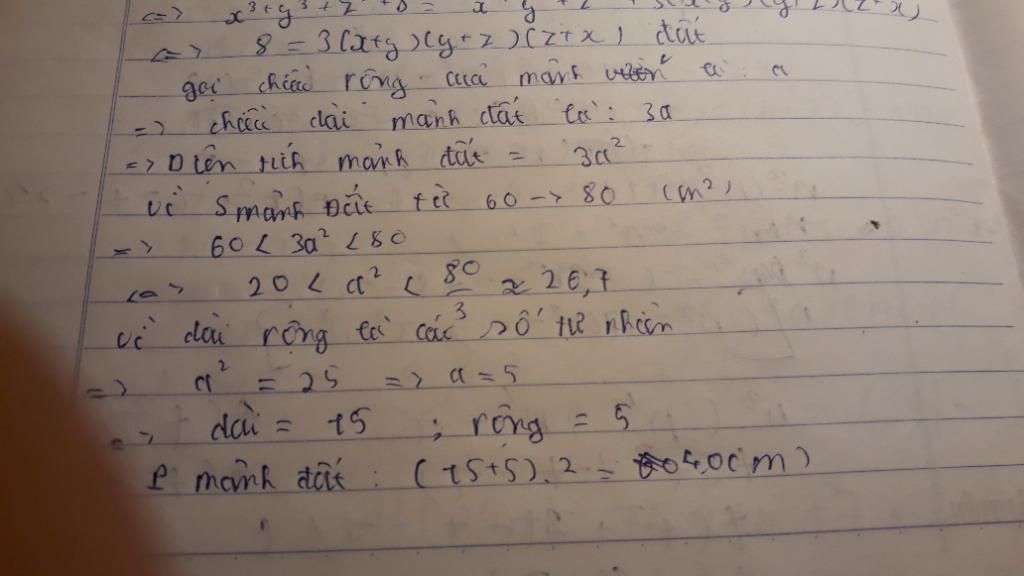 <=> x³+y³+z³+8 = x³ y³ + z³ + 3(x+y)(y+z)(z+x)
<=> 8 = 3(x+y)(y+z)(z+x) đất
gọi chiều rộng của mảnh là: a
=> chiều dài mảnh đất là: 3a
=> Diện tích mảnh đất = 3a²
vì S mảnh Đất từ 60 -> 80 (m²)
=> 60 < 3a² < 80
<=> 20 < a² < 80/3 ≈ 26,7
vì dài rộng là các số tự nhiên
=> a² = 25 => a = 5
=> dài = 15 ; rộng = 5
P mảnh đất : (15+5).2 = 40(m)